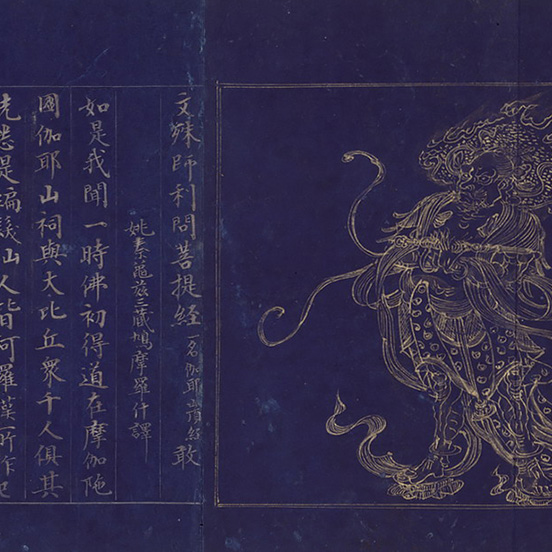 文殊師利問菩提經一名伽耶山頂經 敢
姚秦龜茲三藏鳩摩羅什譯
如是我聞一時佛初得道在摩伽陁
國伽耶山祠與大比丘衆千人俱其
先悉是編髮仙人皆阿羅漢所作已